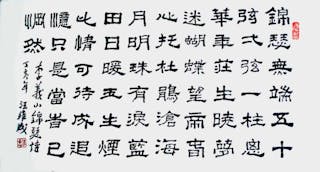 錦瑟無端五十
弦弌弦一柱思
華年莊生曉夢
迷蝴蝶望帝春
心托杜鵑滄海
月明珠有淚藍
田日暖玉生煙
此情可待成追
憶只是當旹已
惘然
李義山錦瑟詩
丁亥